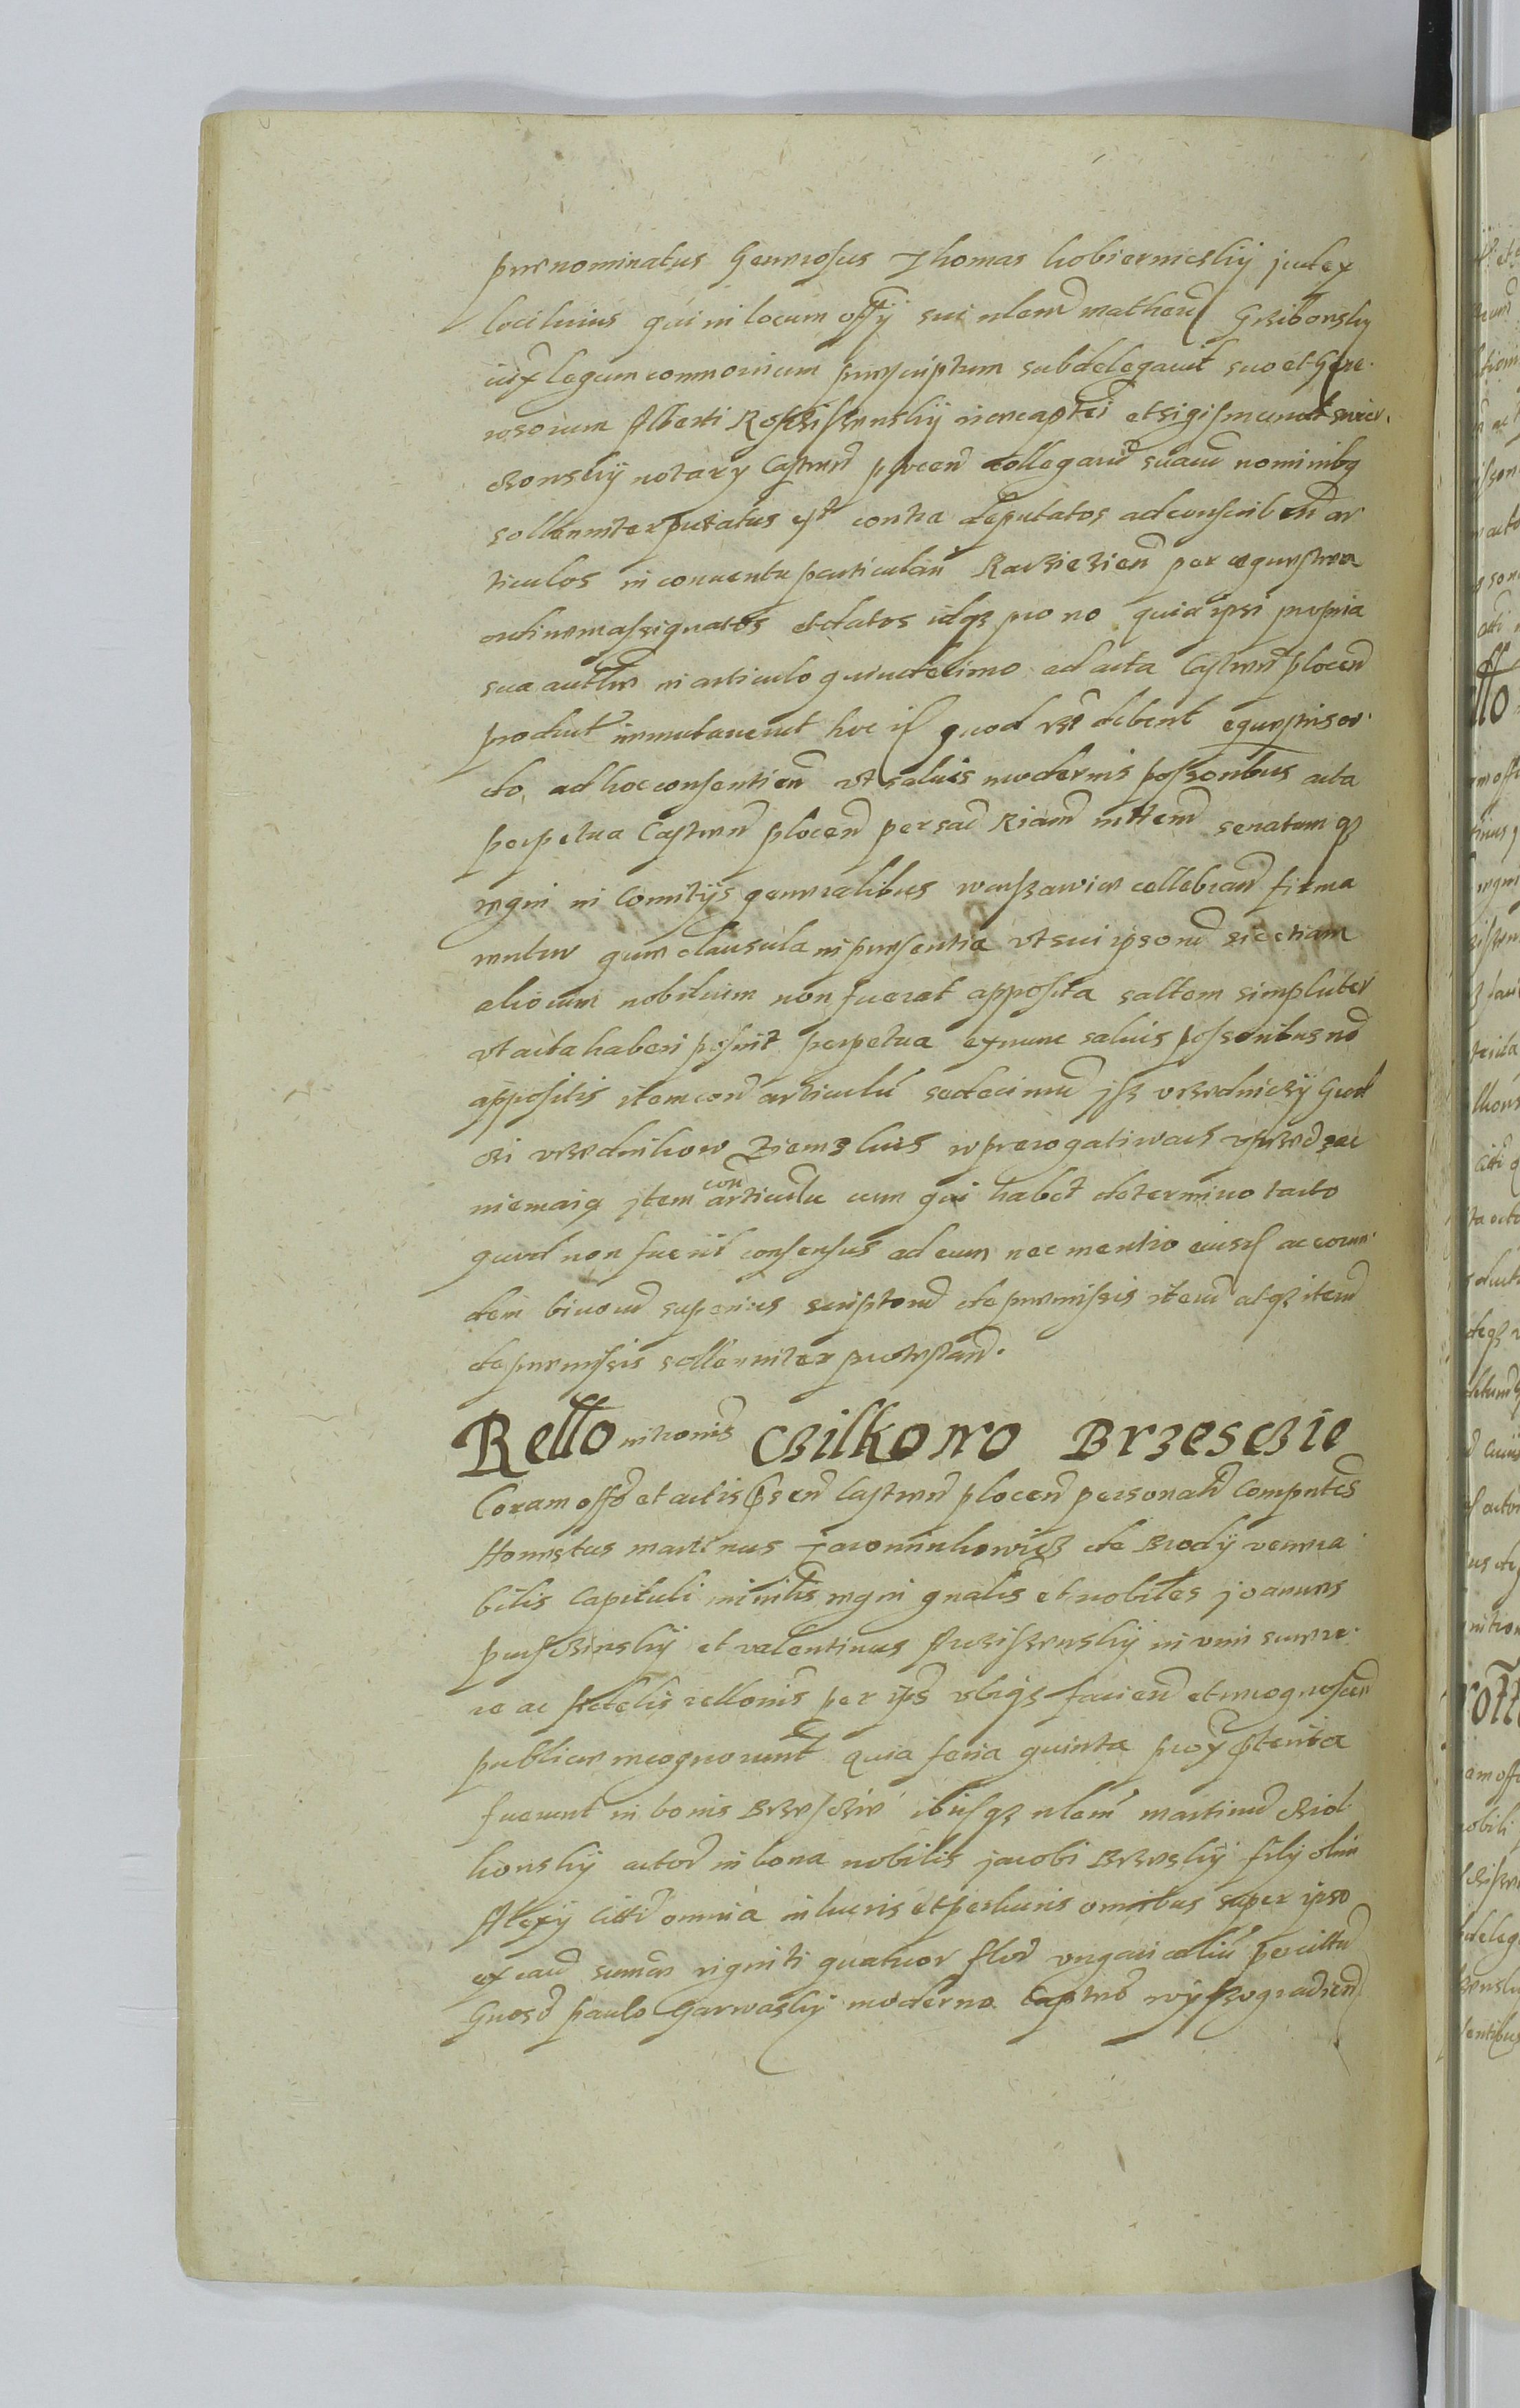 prenominatus Generosus Thomas kobierniczkij judex
loci huius qui in locum offij sui nlem̃ mathem̃ Gzibowsky
iux legum communium prescriptum subdelegauit suo et Gene
rosorum Alberti Rosciszewskij vicecaptei et sigismundi swier
czowskij notary Castren̄ plocen̄ collegarū suarū nominibq
sollenniter protestatus est contra deputatos ad conscribend ar
ticulos in conuentu particulari Raczązien̄ per equestrem
ordinem assignatos et datos idqz pro eo quia ipsi propria
sua autte in articulo quindecimo ad acta Castren̄ plocen̄
producto immutauerunt hoc est quod vbi debent equestris or
do ad hoc consentien̄ vt saluis modernis possoribus acta
perpetua Castren̄ plocen̄ per sac̄ Riam̄ mttem̄ senatumqz
regni in Comitijs generalibus warszawie cellebran̄ firma
rentur que clausula in presentia vt sui ipsorū sic etiam
aliorum nobilium non fuerat apposita saltem simpluter
vt acta haberi possint perpetua ex nunc saluis possoribus nō
appositis item con articulū sedecimū jsz vrzedniczy Grod
czi vrzednikow Ziemskich w prerogatiwach vprzedzac
niemaią item con articulu cum qui habet de termino tacto
quod non fuerit consensus ad eum nec mentio eiusd ac eorun
dem binorū superius scriptorū de premissis iterū atqz iterū
de premissis sollenniter protestan̄.
Rello intromis̄ Czilkowo Brzesczie
Coram offo et actis p̄sen̄ Castren̄ plocen̄ personalr̄ Comparen̄s
Honestus martinus jaroninkowicz de Brody venera
bilis Capituli mintlis regni gnalis et nobiles joannes
pruszczinskij et valentinus Arciszewskij in vim sue ve
re ac fidelis rellonis per ip̄s vbiqz facien̄ et recognoscen̄
publice recognouerunt quia feria quinta prox preterita
fuerunt in bonis Brzesczie ibusqz nlem̄ martinū Czioł
kowskij actorē in bona nobilis jacobi Brzeskij filij olim
Alexij Citti omnia in lucris et perlucris omibus super ipso
ex caū summe viginti quatuor flor̄ vngaricaliū per cittū
Gnosō paulo Garwaskij moderno Captneo wyszogradien̄